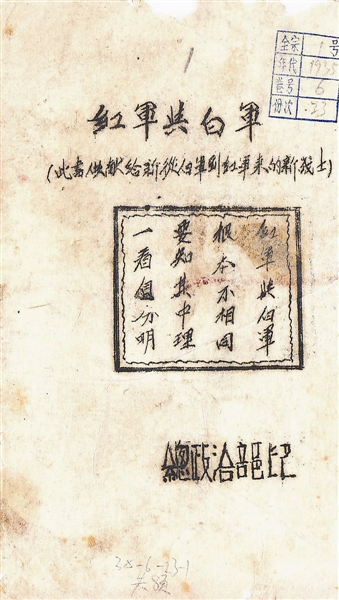 1
全宗 1号
年代 1935
卷号 6
份次 23
紅軍與白軍
(此書供献給新從白軍到紅軍来的新战士)
紅軍與白軍
根本不相同
要知其中理
一看個分明
總政治部印